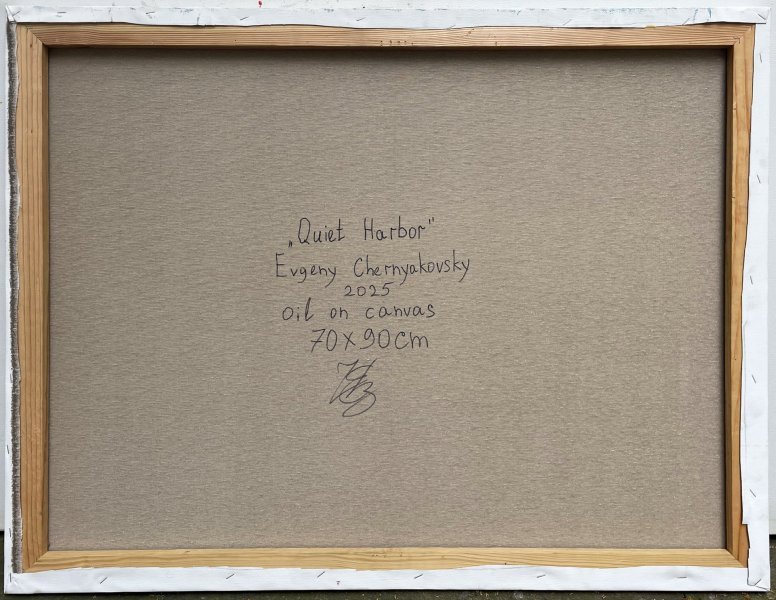 „Quiet Harbor"
Evgeny Chernyakovsky
2025
oil on canvas
70x90cm